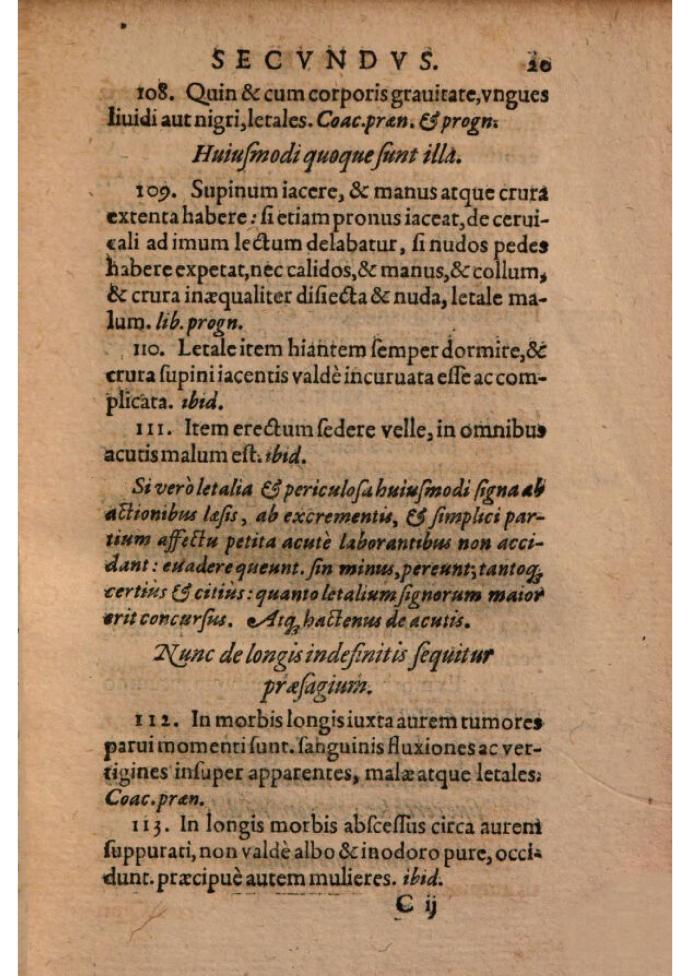 SECVNDVS. 20
108. Quin & cum corporis grauitate, vngues
liuidi aut nigri, letales. Coac. præn. & progn.
Huiuſmodi quoque ſunt illa.
109. Supinum iacere, & manus atque crura
extenta habere: ſi etiam pronus iaceat, de cerui-
cali ad imum lectum delabatur, ſi nudos pedes
habere expetat, nec calidos, & manus, & collum,
& crura inæqualiter diſiecta & nuda, letale ma-
lum. lib. progn.
110. Letale item hiantem ſemper dormire, &
crura ſupini iacentis valdè incuruata eſſe ac com-
plicata. ibid.
111. Item erectum ſedere velle, in omnibus
acutis malum eſt. ibid.
Si verò letalia & periculoſa huiuſmodi ſigna ab
actionibus læſis, ab excrementis, & ſimplici par-
tium affectu petita acutè laborantibus non acci-
dant: euadere queunt. ſin minus, pereunt; tantoq́;
certiùs & citiùs: quanto letalium ſignorum maior
erit concurſus. Atq; hactenus de acutis.
Nunc de longis indefinitis ſequitur
præſagium.
112. In morbis longis iuxta aurem tumores
parui momenti ſunt. ſanguinis fluxiones ac ver-
tigines inſuper apparentes, malæ atque letales.
Coac. præn.
113. In longis morbis abſceſſus circa aurem
ſuppurati, non valdè albo & inodoro pure, occi-
dunt. præcipuè autem mulieres. ibid.
C ij